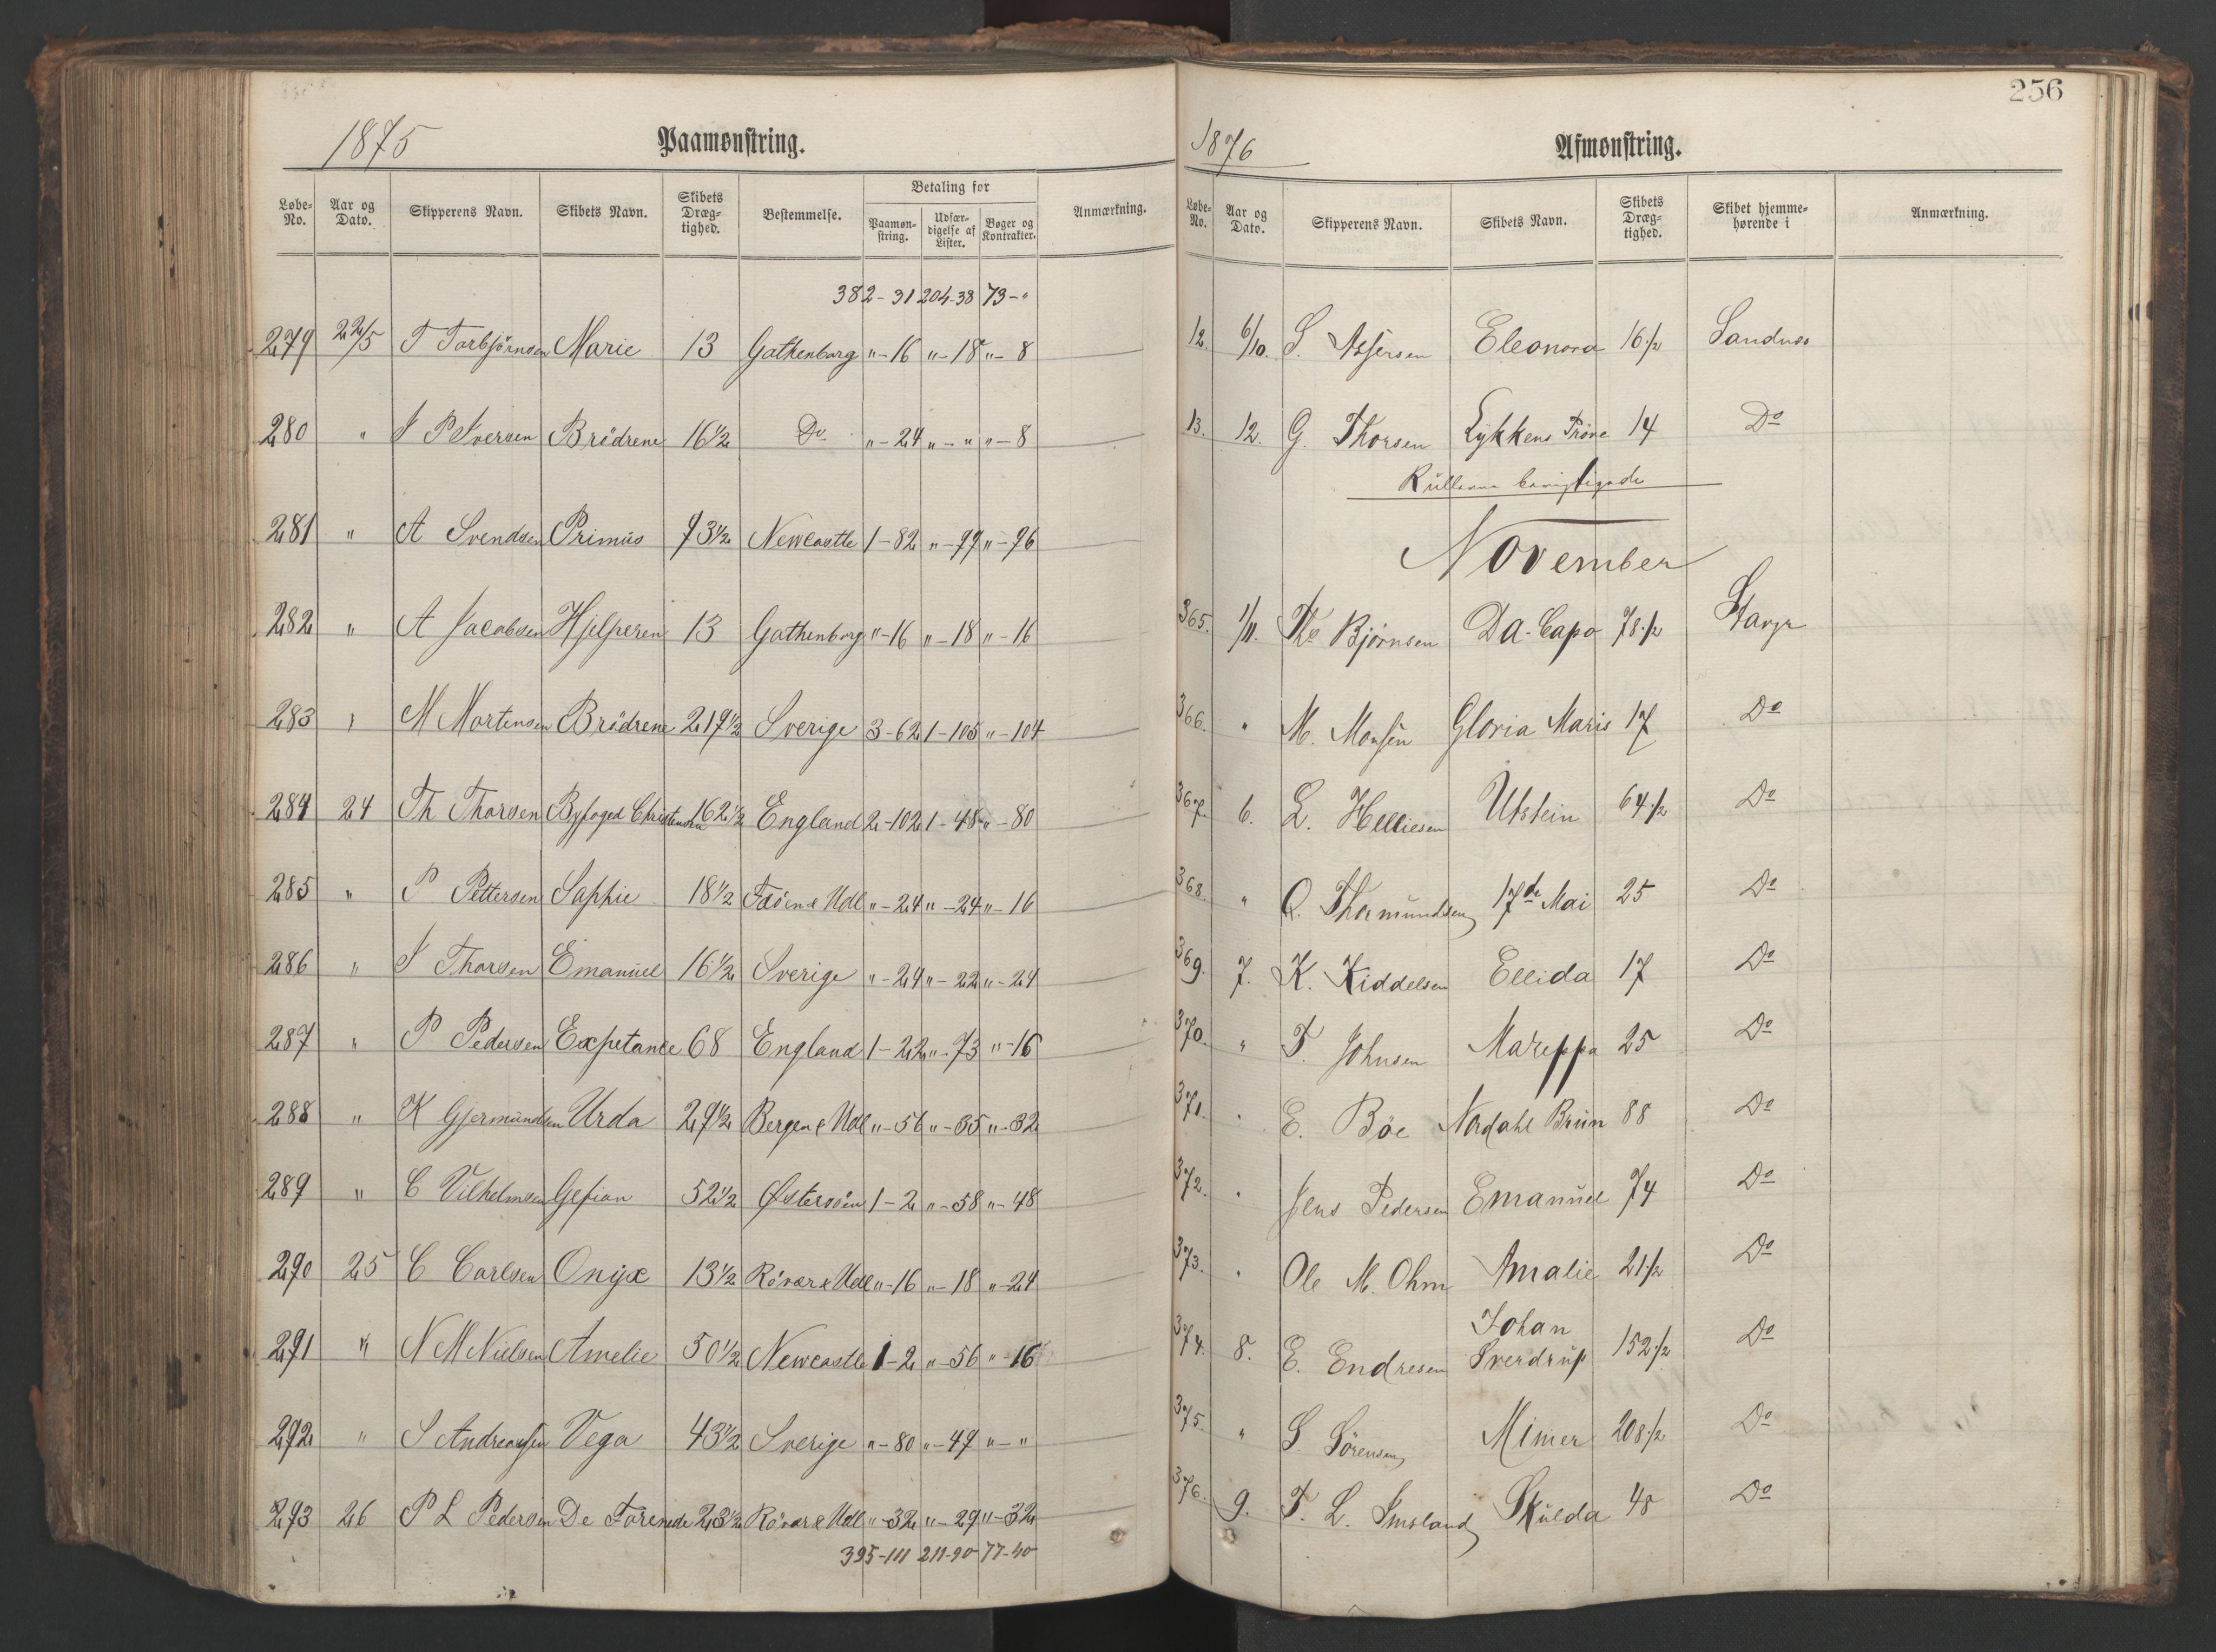 1875 Paamønstring.
Løbe-No. Aar og Dato. Skipperens Navn. Skibets Navn. Skibets Dræg-tighed. Bestemmelse. Betaling for Paamøn-string. Udfær-digelse af Lister. Bøger og Kontrakter. Anmærkning.
382-31 204-38 73-"
279 22/5 T Torbjörnsen Marie 13 Gothenborg "-16 "-18 "-8
280 " I P Iversen Brödrene 16 1/2 Do "-24 "-" "-8
281 " A Svendsen Primus 93 1/2 Newcastle 1-82 "-99 "-96
282 " A Jacobsen Hjelperen 13 Gothenborg "-16 "-18 "-16
283 " M Mortensen Brödrene 219 1/2 Sverige 3-62 1-105 "-104
284 24 Th Thorsen Byfoged Christensen 162 1/2 England 2-102 1-48 "-80
285 " P Pettersen Sophie 18 1/2 & Udl "-24 "-24 "-16
286 " I Thorsen Emanuel 16 1/2 Sverige "-24 "-22 "-24
287 " P Pedersen Expetance 68 England 1-22 "-73 "-16
288 " K Gjermundsen Urda 29 1/2 Bergen & Udl "-56 "-35 "-32
289 " C Vilhelmsen Gefion 52 1/2 Østersöen 1-2 "-58 "-48
290 25 C Carlsen Onyx 13 1/2 Rövær & Udl "-16 "-18 "-24
291 " N M Nielsen Amelie 50 1/2 Newcastle 1-2 "-56 "-16
292 " S Andreassen Vega 43 1/2 Sverige "-80 "-49 "-"
293 26 P L Pedersen De Forenede 23 1/2 Rövær & Udl "-32 "-29 "-32
395-111 211-90 77-40
256
1876 Afmønstring.
Løbe-No. Aar og Dato. Skipperens Navn. Skibets Navn. Skibets Dræg-tighed. Skibet hjemme-hørende i Anmærkning.
12. 6/10. S. Assersen Eleonora 16 1/2 Sandnes
13. 12. G. Thorsen Lykkens Prøve 14 Do
Rullerne
November
365. 1/11. Ths Bjørnsen Da-Capo 78 1/2 Stavgr
366. " M. Monsen Gloria Maris 17 Do
367. 6. L. Helliesen Utstein 64 1/2 Do
368. " O. Thormundsen 17de Mai 25 Do
369. 7. K. Kiddelsen Ellida 17 Do
370. " T. Johnsen Mazeppa 25 Do
371. " E. Böe Nordahl Brun 88 Do
372. " Jens Pedersen Emanuel 74 Do
373. " Ole M. Ohm Amalie 21 1/2 Do
374. 8. E. Endresen Johan Sverdrup 152 1/2 Do
375. " S Sörensen Mimer 208 1/2 Do
376. 9. T. L. Imsland Skulda 48 Do